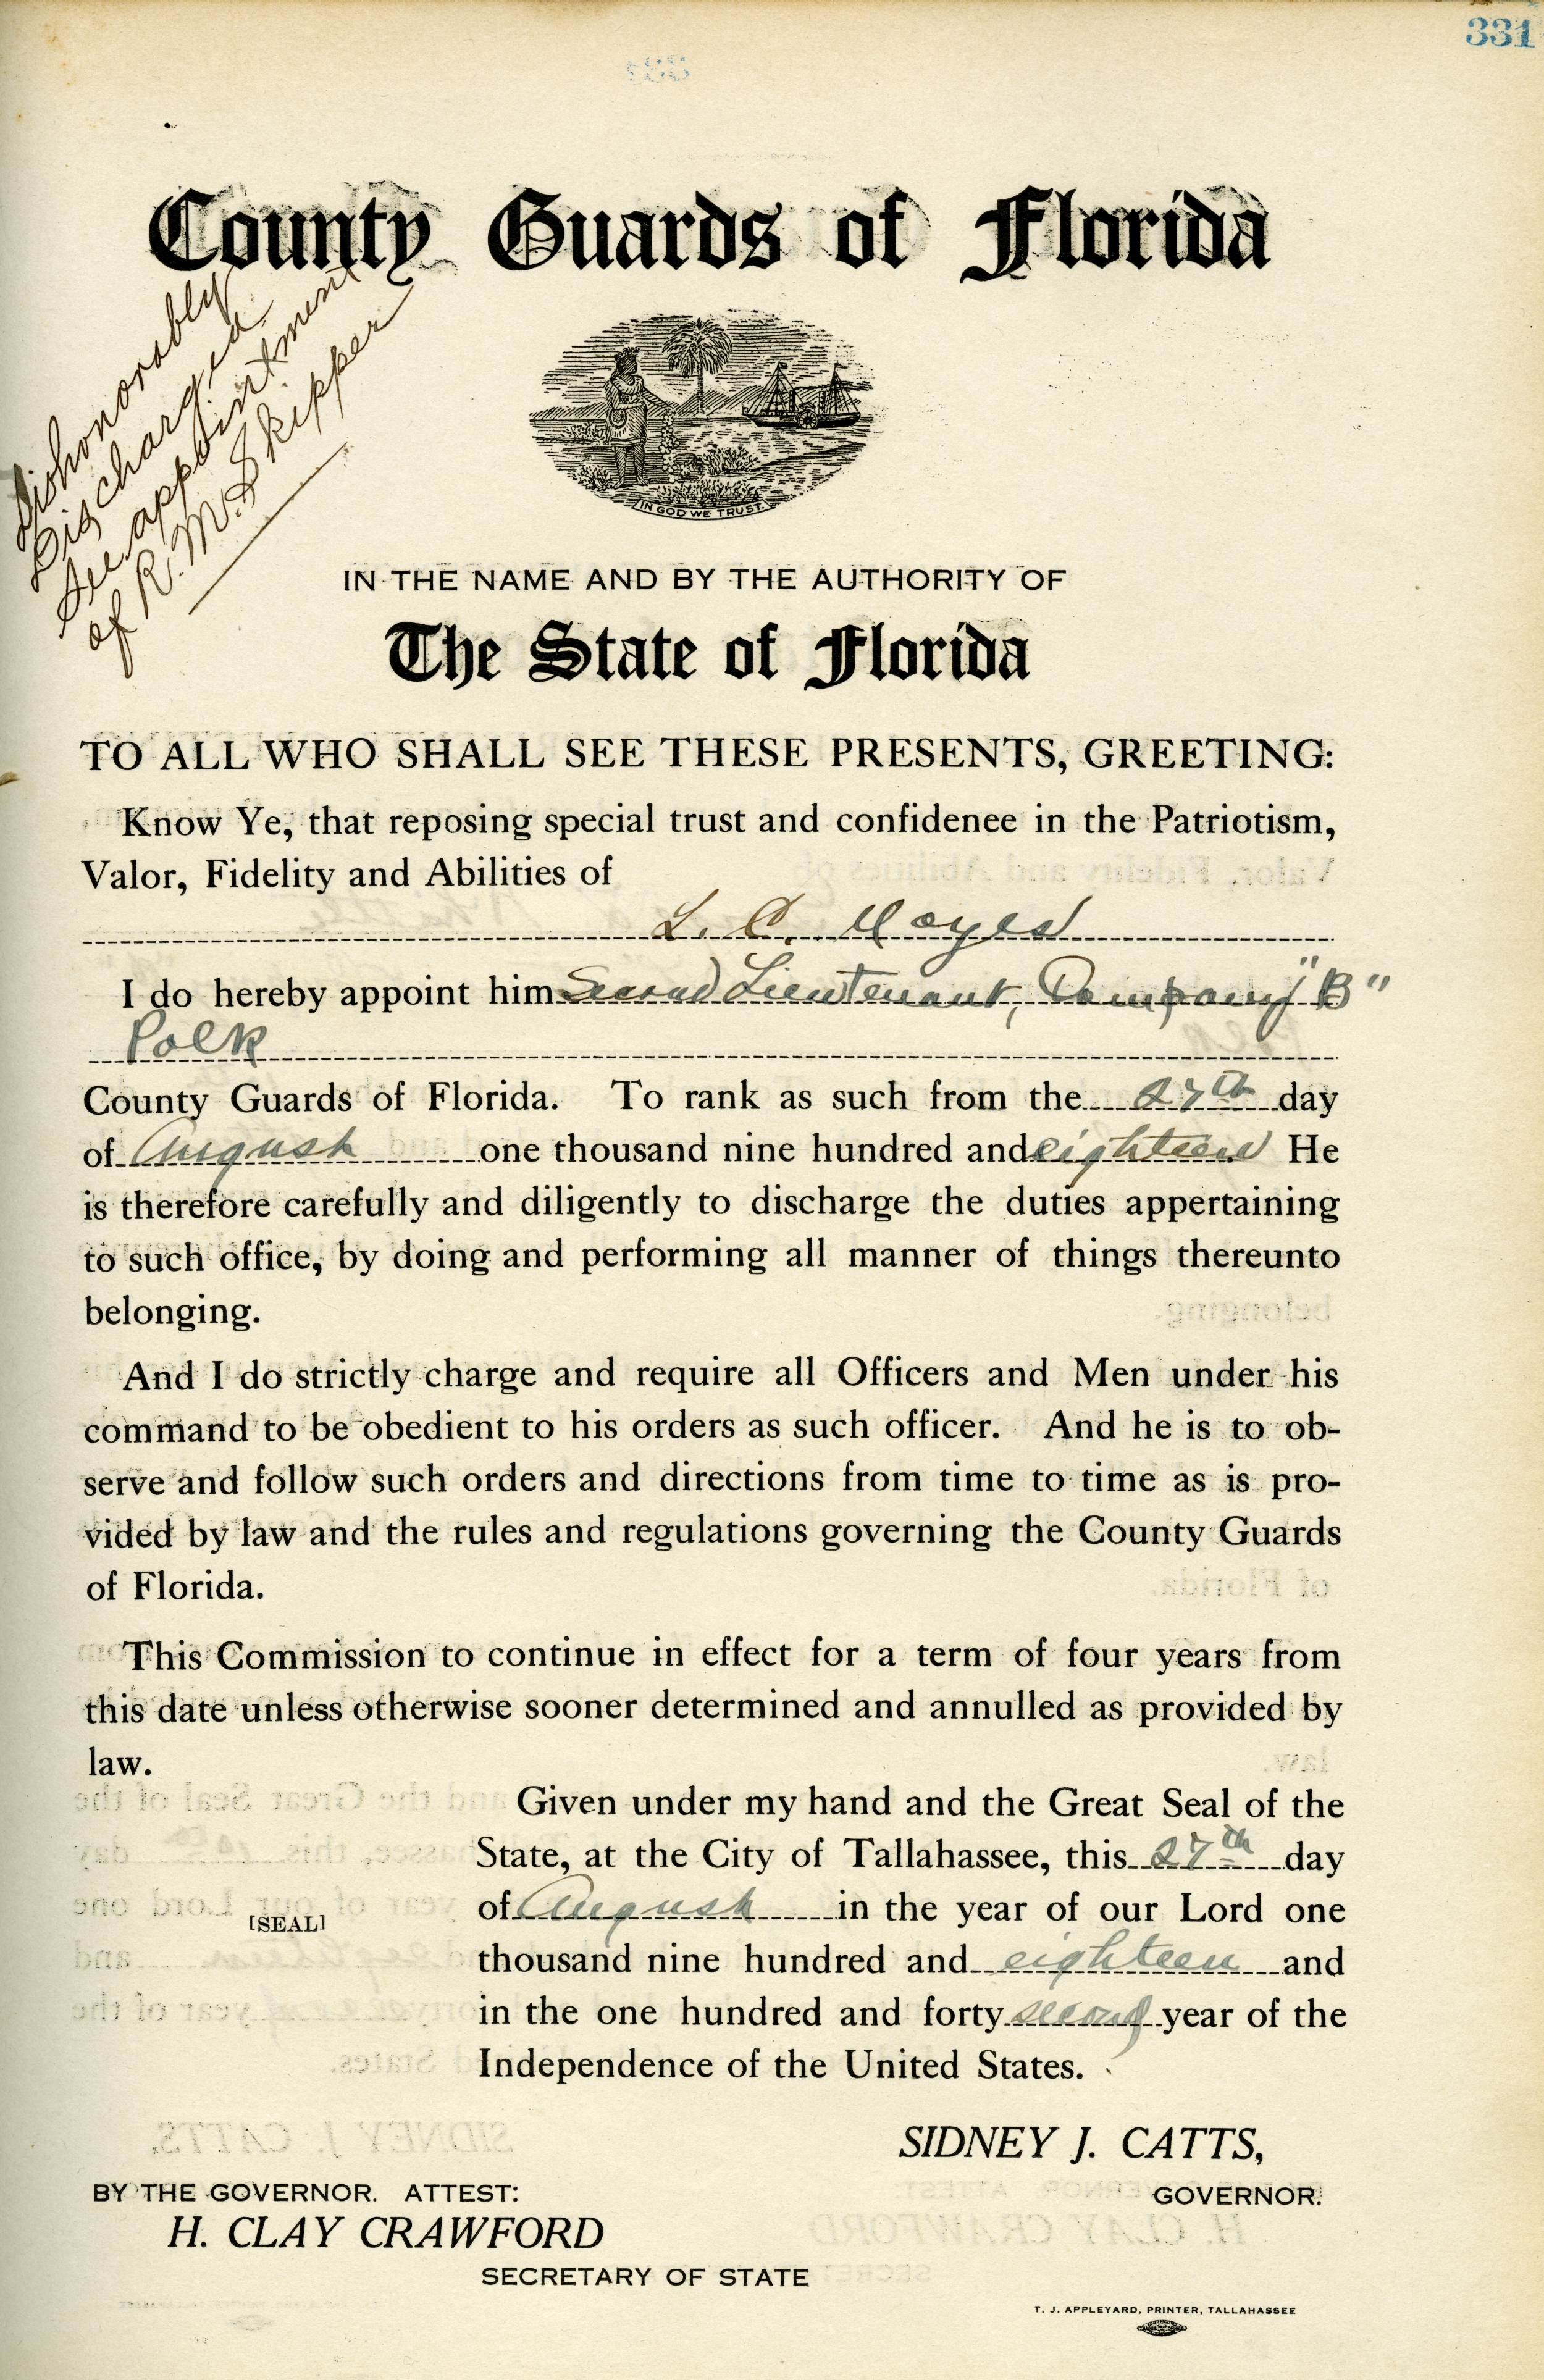 331
County Guards of Florida
Dishonorably
Discharged
See appointment
of R. M. Skipper
IN GOD WE TRUST.
IN THE NAME AND BY THE AUTHORITY OF
The State of Florida
TO ALL WHO SHALL SEE THESE PRESENTS, GREETING:
Know Ye, that reposing special trust and confidenee in the Patriotism,
Valor, Fidelity and Abilities of
L. C.
I do hereby appoint him Second Lieutenant, Company "B"
Polk
County Guards of Florida. To rank as such from the 27th day
of August one thousand nine hundred and eighteen He
is therefore carefully and diligently to discharge the duties appertaining
to such office, by doing and performing all manner of things thereunto
belonging.
And I do strictly charge and require all Officers and Men under his
command to be obedient to his orders as such officer. And he is to ob-
serve and follow such orders and directions from time to time as is pro-
vided by law and the rules and regulations governing the County Guards
of Florida.
This Commission to continue in effect for a term of four years from
this date unless otherwise sooner determined and annulled as provided by
law.
Given under my hand and the Great Seal of the
State, at the City of Tallahassee, this 27th day
of August in the year of our Lord one
[SEAL]
thousand nine hundred and eighteen and
in the one hundred and forty second year of the
Independence of the United States.
SIDNEY J. CATTS,
GOVERNOR.
BY THE GOVERNOR. ATTEST:
H. CLAY CRAWFORD
SECRETARY OF STATE
T. J. APPLEYARD, PRINTER, TALLAHASSEE